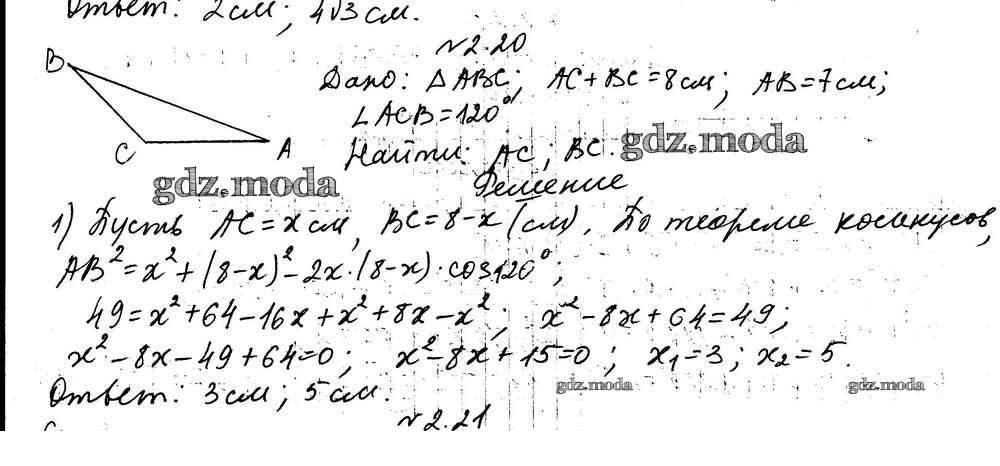 Ответ: 2см; 4√3 см.
№2.20
B
C
A
Дано: △ABC; AC+BC=8см; AB=7см;
∠ACB=120°
Найти: AC; BC.
gdz.moda
gdz.moda
Решение
1) Пусть AC=x см, BC=8-x (см). По теореме косинусов,
AB²=x²+(8-x)²-2x·(8-x)·cos120°;
49=x²+64-16x+x²+8x-x²; x²-8x+64=49;
x²-8x-49+64=0; x²-8x+15=0; x₁=3; x₂=5.
Ответ: 3см; 5см.
gdz.moda
gdz.moda
№2.21